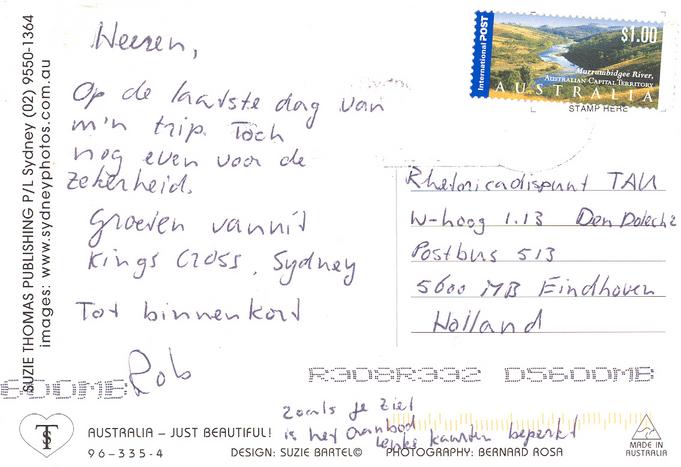 Heeren,
Op de laatste dag van
m'n trip. Toch
nog even voor de
zekerheid.
Groeten vanuit
Kings Cross, Sydney
Tot binnenkort
Rob
zoals je ziet
is het aanbod
leuke kaarten beperkt
International POST
$1.00
Murrumbidgee River,
AUSTRALIAN CAPITAL TERRITORY
AUSTRALIA
STAMP HERE
Rhetoricadispuut TAU
W-hoog 1.13 Den Dolech 2
Postbus 513
5600 MB Eindhoven
Holland
R308R392 D5600MB
600MB
SUZIE THOMAS PUBLISHING P/L Sydney (02) 9550-1364
images: www.sydneyphotos.com.au
TS
AUSTRALIA – JUST BEAUTIFUL!
96-335-4
DESIGN: SUZIE BARTEL© PHOTOGRAPHY: BERNARD ROSA
MADE IN
AUSTRALIA